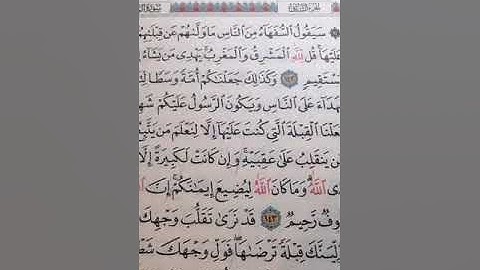 سَيَقُولُ ٱلسُّفَهَآءُ مِنَ ٱلنَّاسِ مَا وَلَّىٰهُمْ عَن قِبْلَتِهِمُ
عَلَيْهَا ۚ قُل لِّلَّهِ ٱلْمَشْرِقُ وَٱلْمَغْرِبُ ۚ يَهْدِى مَن يَشَآءُ
مُّسْتَقِيمٍ ١٤٢ وَكَذَٰلِكَ جَعَلْنَٰكُمْ أُمَّةً وَسَطًا لِّ
شُهَدَآءَ عَلَى ٱلنَّاسِ وَيَكُونَ ٱلرَّسُولُ عَلَيْكُمْ شَهِ
جَعَلْنَا ٱلْقِبْلَةَ ٱلَّتِى كُنتَ عَلَيْهَآ إِلَّا لِنَعْلَمَ مَن يَتَّبِ
مِمَّن يَنقَلِبُ عَلَىٰ عَقِبَيْهِ ۚ وَإِن كَانَتْ لَكَبِيرَةً إِلَّا
هَدَى ٱللَّهُ ۗ وَمَا كَانَ ٱللَّهُ لِيُضِيعَ إِيمَٰنَكُمْ ۚ إِنَّ
لَرَءُوفٌ رَّحِيمٌ ١٤٣ قَدْ نَرَىٰ تَقَلُّبَ وَجْهِكَ
فَلَنُوَلِّيَنَّكَ قِبْلَةً تَرْضَىٰهَا ۚ فَوَلِّ وَجْهَكَ شَطْ